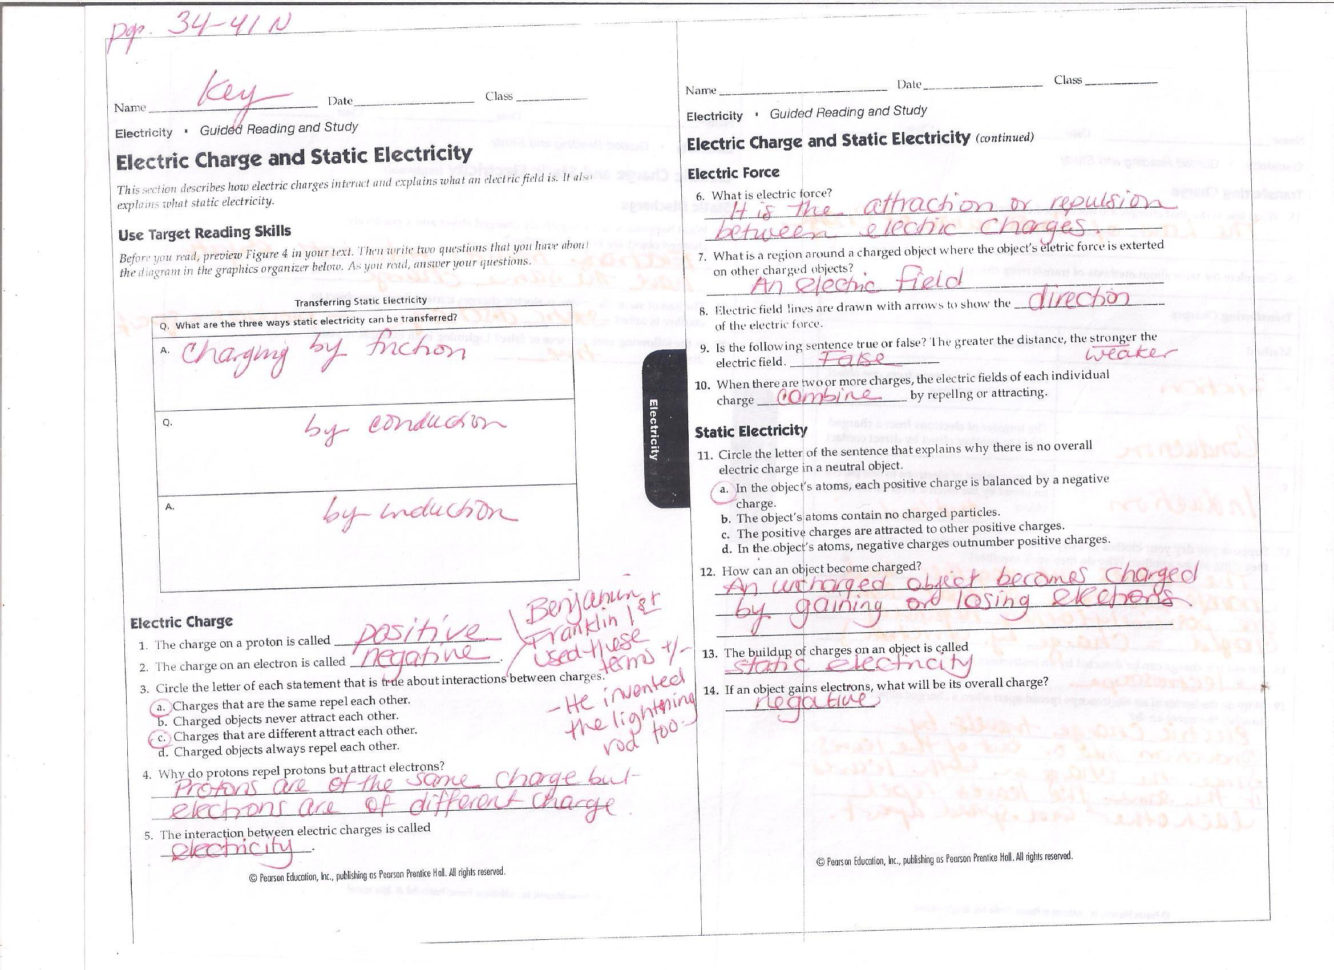 pgs. 34-41 N
Name Key Date Class
Electricity • Guided Reading and Study
Electric Charge and Static Electricity
This section describes how electric charges interact and explains what an electric field is. It also
explains what static electricity.
Use Target Reading Skills
Before you read, preview Figure 4 in your text. Then write two questions that you have about
the diagram in the graphics organizer below. As you read, answer your questions.
Transferring Static Electricity
Q. What are the three ways static electricity can be transferred?
A. Charging by friction
Q. by conduction
A. by induction
Electric Charge
1. The charge on a proton is called positive
2. The charge on an electron is called negative.
Benjamin
Franklin 1st
used these
terms +/-
- He invented
the lightning
rod too.
3. Circle the letter of each statement that is true about interactions between charges.
a. Charges that are the same repel each other.
b. Charged objects never attract each other.
c. Charges that are different attract each other.
d. Charged objects always repel each other.
4. Why do protons repel protons but attract electrons?
Protons are of the same charge but
electrons are of different charge.
5. The interaction between electric charges is called
electricity.
© Pearson Education, Inc., publishing as Pearson Prentice Hall. All rights reserved.
Electricity
Name Date Class
Electricity • Guided Reading and Study
Electric Charge and Static Electricity (continued)
Electric Force
6. What is electric force?
It is the attraction or repulsion
between electric charges.
7. What is a region around a charged object where the object's eletric force is exterted
on other charged objects?
An electric field
8. Electric field lines are drawn with arrows to show the direction
of the electric force.
9. Is the following sentence true or false? The greater the distance, the stronger the
electric field. False weaker
10. When there are two or more charges, the electric fields of each individual
charge combine by repellng or attracting.
Static Electricity
11. Circle the letter of the sentence that explains why there is no overall
electric charge in a neutral object.
a. In the object's atoms, each positive charge is balanced by a negative
charge.
b. The object's atoms contain no charged particles.
c. The positive charges are attracted to other positive charges.
d. In the object's atoms, negative charges outnumber positive charges.
12. How can an object become charged?
An uncharged object becomes charged
by gaining or losing electrons.
13. The buildup of charges on an object is called
static electricity
14. If an object gains electrons, what will be its overall charge?
negative
© Pearson Education, Inc., publishing as Pearson Prentice Hall. All rights reserved.